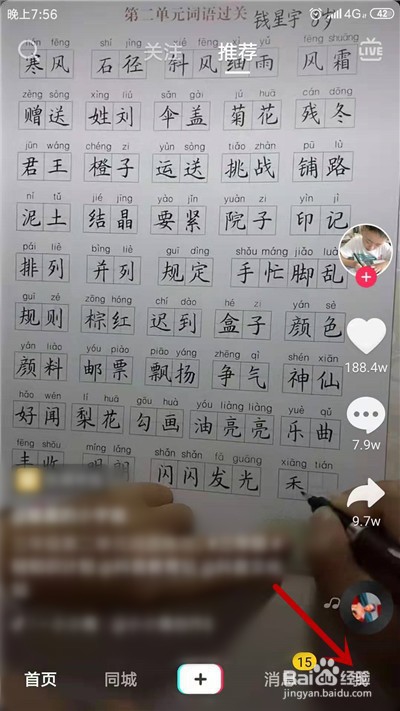 晚上7:56 4G 42
第二单元词语过关 钱星宇 8岁
关注 推荐 LIVE
寒风 石径 斜风细雨 风霜
zèng sòng xìng liú sǎn gài jú huā cán dōng
赠送 姓刘 伞盖 菊花 残冬
jūn wáng chéng zi yùn sòng tiǎo zhàn pū lù
君王 橙子 运送 挑战 铺路
ní tǔ jié jīng yào jǐn yuàn zi yìn jì
泥土 结晶 要紧 院子 印记
pái liè bìng liè guī dìng shǒu máng jiǎo luàn
排列 并列 规定 手忙脚乱
guī zé zōng hóng chí dào hé zi yán sè
规则 棕红 迟到 盒子 颜色
188.4w
yán liào yóu piào piāo yáng zhēng qì shén xiān
颜料 邮票 飘扬 争气 神仙
hǎo wén lí huā gōu huà yóu liàng liàng yuè qǔ
好闻 梨花 勾画 油亮亮 乐曲
7.9w
fēng shōu míng lǎng shǎn shǎn fā guāng xiāng tián
丰收 明朗 闪闪发光 禾
9.7w
首页 同城 消息 15
Baidu 经验
jingyan.baidu.com